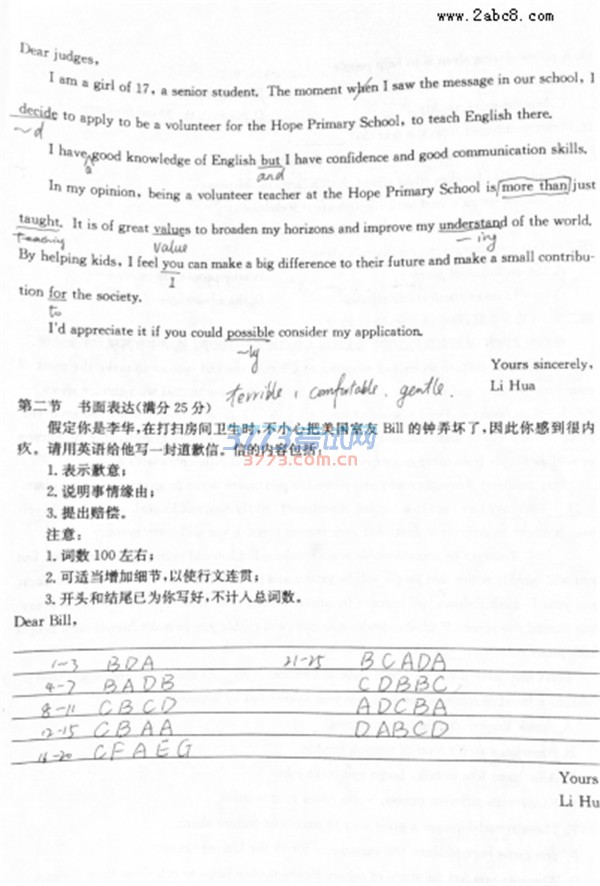 www.2abc8.com
Dear judges,
I am a girl of 17, a senior student. The moment when I saw the message in our school, I
decide to apply to be a volunteer for the Hope Primary School, to teach English there.
~d
I have good knowledge of English but I have confidence and good communication skills.
a
and
In my opinion, being a volunteer teacher at the Hope Primary School is more than just
taught. It is of great values to broaden my horizons and improve my understand of the world.
teaching
value
~ing
By helping kids, I feel you can make a big difference to their future and make a small contribu-
I
tion for the society.
to
I'd appreciate it if you could possible consider my application.
~ly
Yours sincerely,
Li Hua
terrible, comfortable, gentle.
第二节 书面表达(满分 25 分)
假定你是李华,在打扫房间卫生时,不小心把美国室友 Bill 的钟弄坏了,因此你感到很内
疚。请用英语给他写一封道歉信。信的内容包括:
3773考试网
3773.com.cn
1. 表示歉意;
2. 说明事情缘由;
3. 提出赔偿。
注意:
1. 词数 100 左右;
2. 可适当增加细节,以使行文连贯;
3. 开头和结尾已为你写好,不计入总词数。
Dear Bill,
1-3 BDA 21-25 BCADA
4-7 BADB CDBBC
8-11 CBCD ADCBA
12-15 CBAA DABCD
16-20 CFAEG
Yours
Li Hu